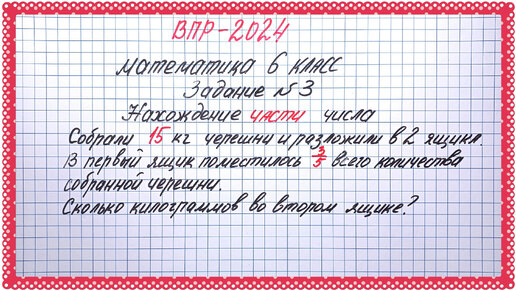 ВПР-2024
математика 6 класс
Задание №3
Нахождение части числа
Собрали 15 кг черешни и разложили в 2 ящика.
В первый ящик поместилось 3/5 всего количества
собранной черешни.
Сколько килограммов во втором ящике?